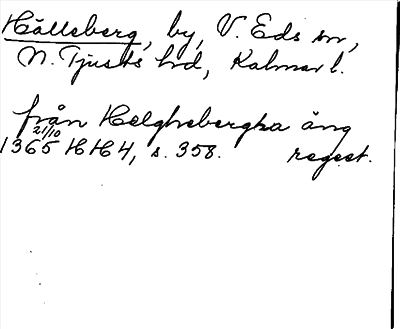 Hälleberg, by, V. Eds sn,
N. Tjusts hd, Kalmar l.
från Helghebergha äng
21/10
1365 HH4, s. 358. regest.